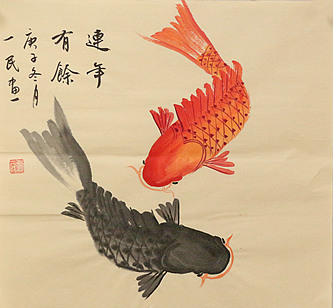 連年
有餘
庚子冬月
一民画一